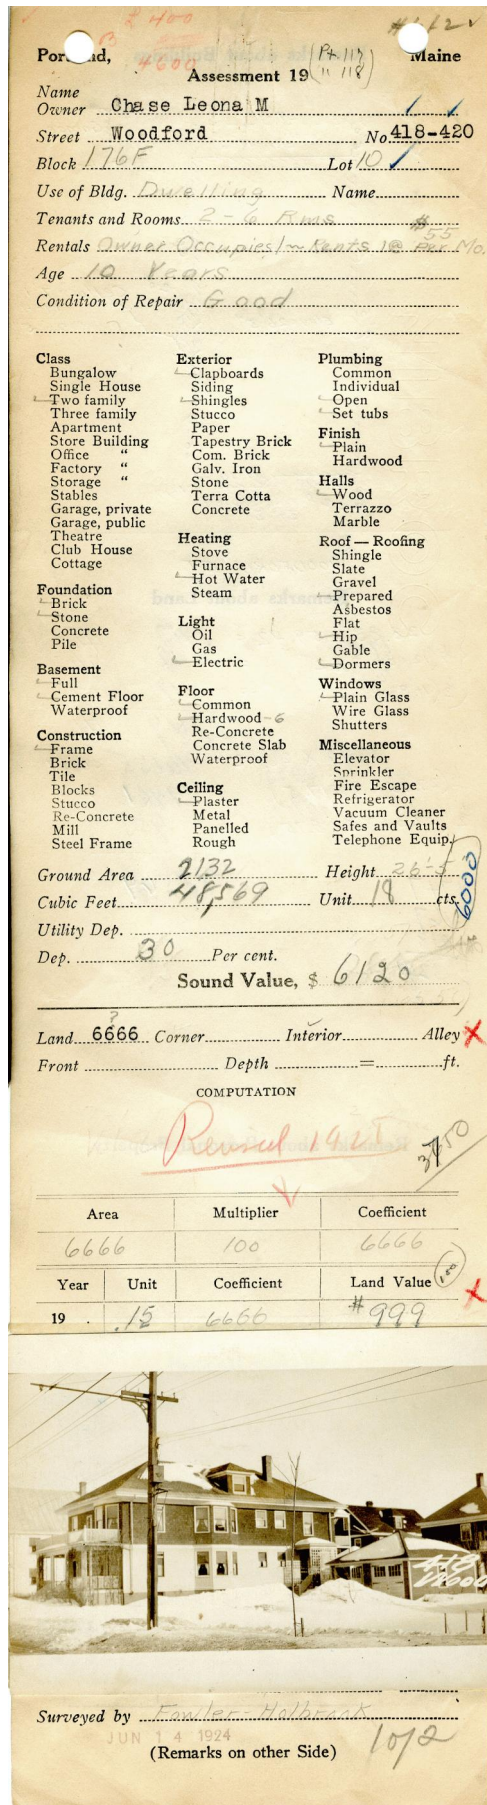 £ 400
B 4600
Portland, Maine
Assessment 19
(Pt. 117
" 118)
Name
Owner Chase Leona M
Street Woodford No. 418-420
Block 176F Lot 10
Use of Bldg. Dwelling Name
Tenants and Rooms 2 - 6 Rms
Rentals Owner Occupies 1 ~ Rents 1 @ $55 Per Mo.
Age 10 Years
Condition of Repair Good
Class
Bungalow
Single House
Two family
Three family
Apartment
Store Building
Office "
Factory "
Storage "
Stables
Garage, private
Garage, public
Theatre
Club House
Cottage
Foundation
Brick
Stone
Concrete
Pile
Basement
Full
Cement Floor
Waterproof
Construction
Frame
Brick
Tile
Blocks
Stucco
Re-Concrete
Mill
Steel Frame
Exterior
Clapboards
Siding
Shingles
Stucco
Paper
Tapestry Brick
Com. Brick
Galv. Iron
Stone
Terra Cotta
Concrete
Heating
Stove
Furnace
Hot Water
Steam
Light
Oil
Gas
Electric
Floor
Common
Hardwood - 6
Re-Concrete
Concrete Slab
Waterproof
Ceiling
Plaster
Metal
Panelled
Rough
Plumbing
Common
Individual
Open
Set tubs
Finish
Plain
Hardwood
Halls
Wood
Terrazzo
Marble
Roof — Roofing
Shingle
Slate
Gravel
Prepared
Asbestos
Flat
Hip
Gable
Dormers
Windows
Plain Glass
Wire Glass
Shutters
Miscellaneous
Elevator
Sprinkler
Fire Escape
Refrigerator
Vacuum Cleaner
Safes and Vaults
Telephone Equip.
Ground Area 2132 Height 26'-5"
Cubic Feet 48,569 Unit 18 cts.
6000
Utility Dep.
Dep. 30 Per cent.
Sound Value, $ 6120
?
Land 6666 Corner Interior Alley X
Front Depth = ft.
COMPUTATION
3450
Area Multiplier Coefficient
6666 100 6666
Year Unit Coefficient Land Value
100
19 . .15 6666 #999
X
418
Wood
Surveyed by Fowler-Holbrook
JUN 14 1924
(Remarks on other Side)
10/2